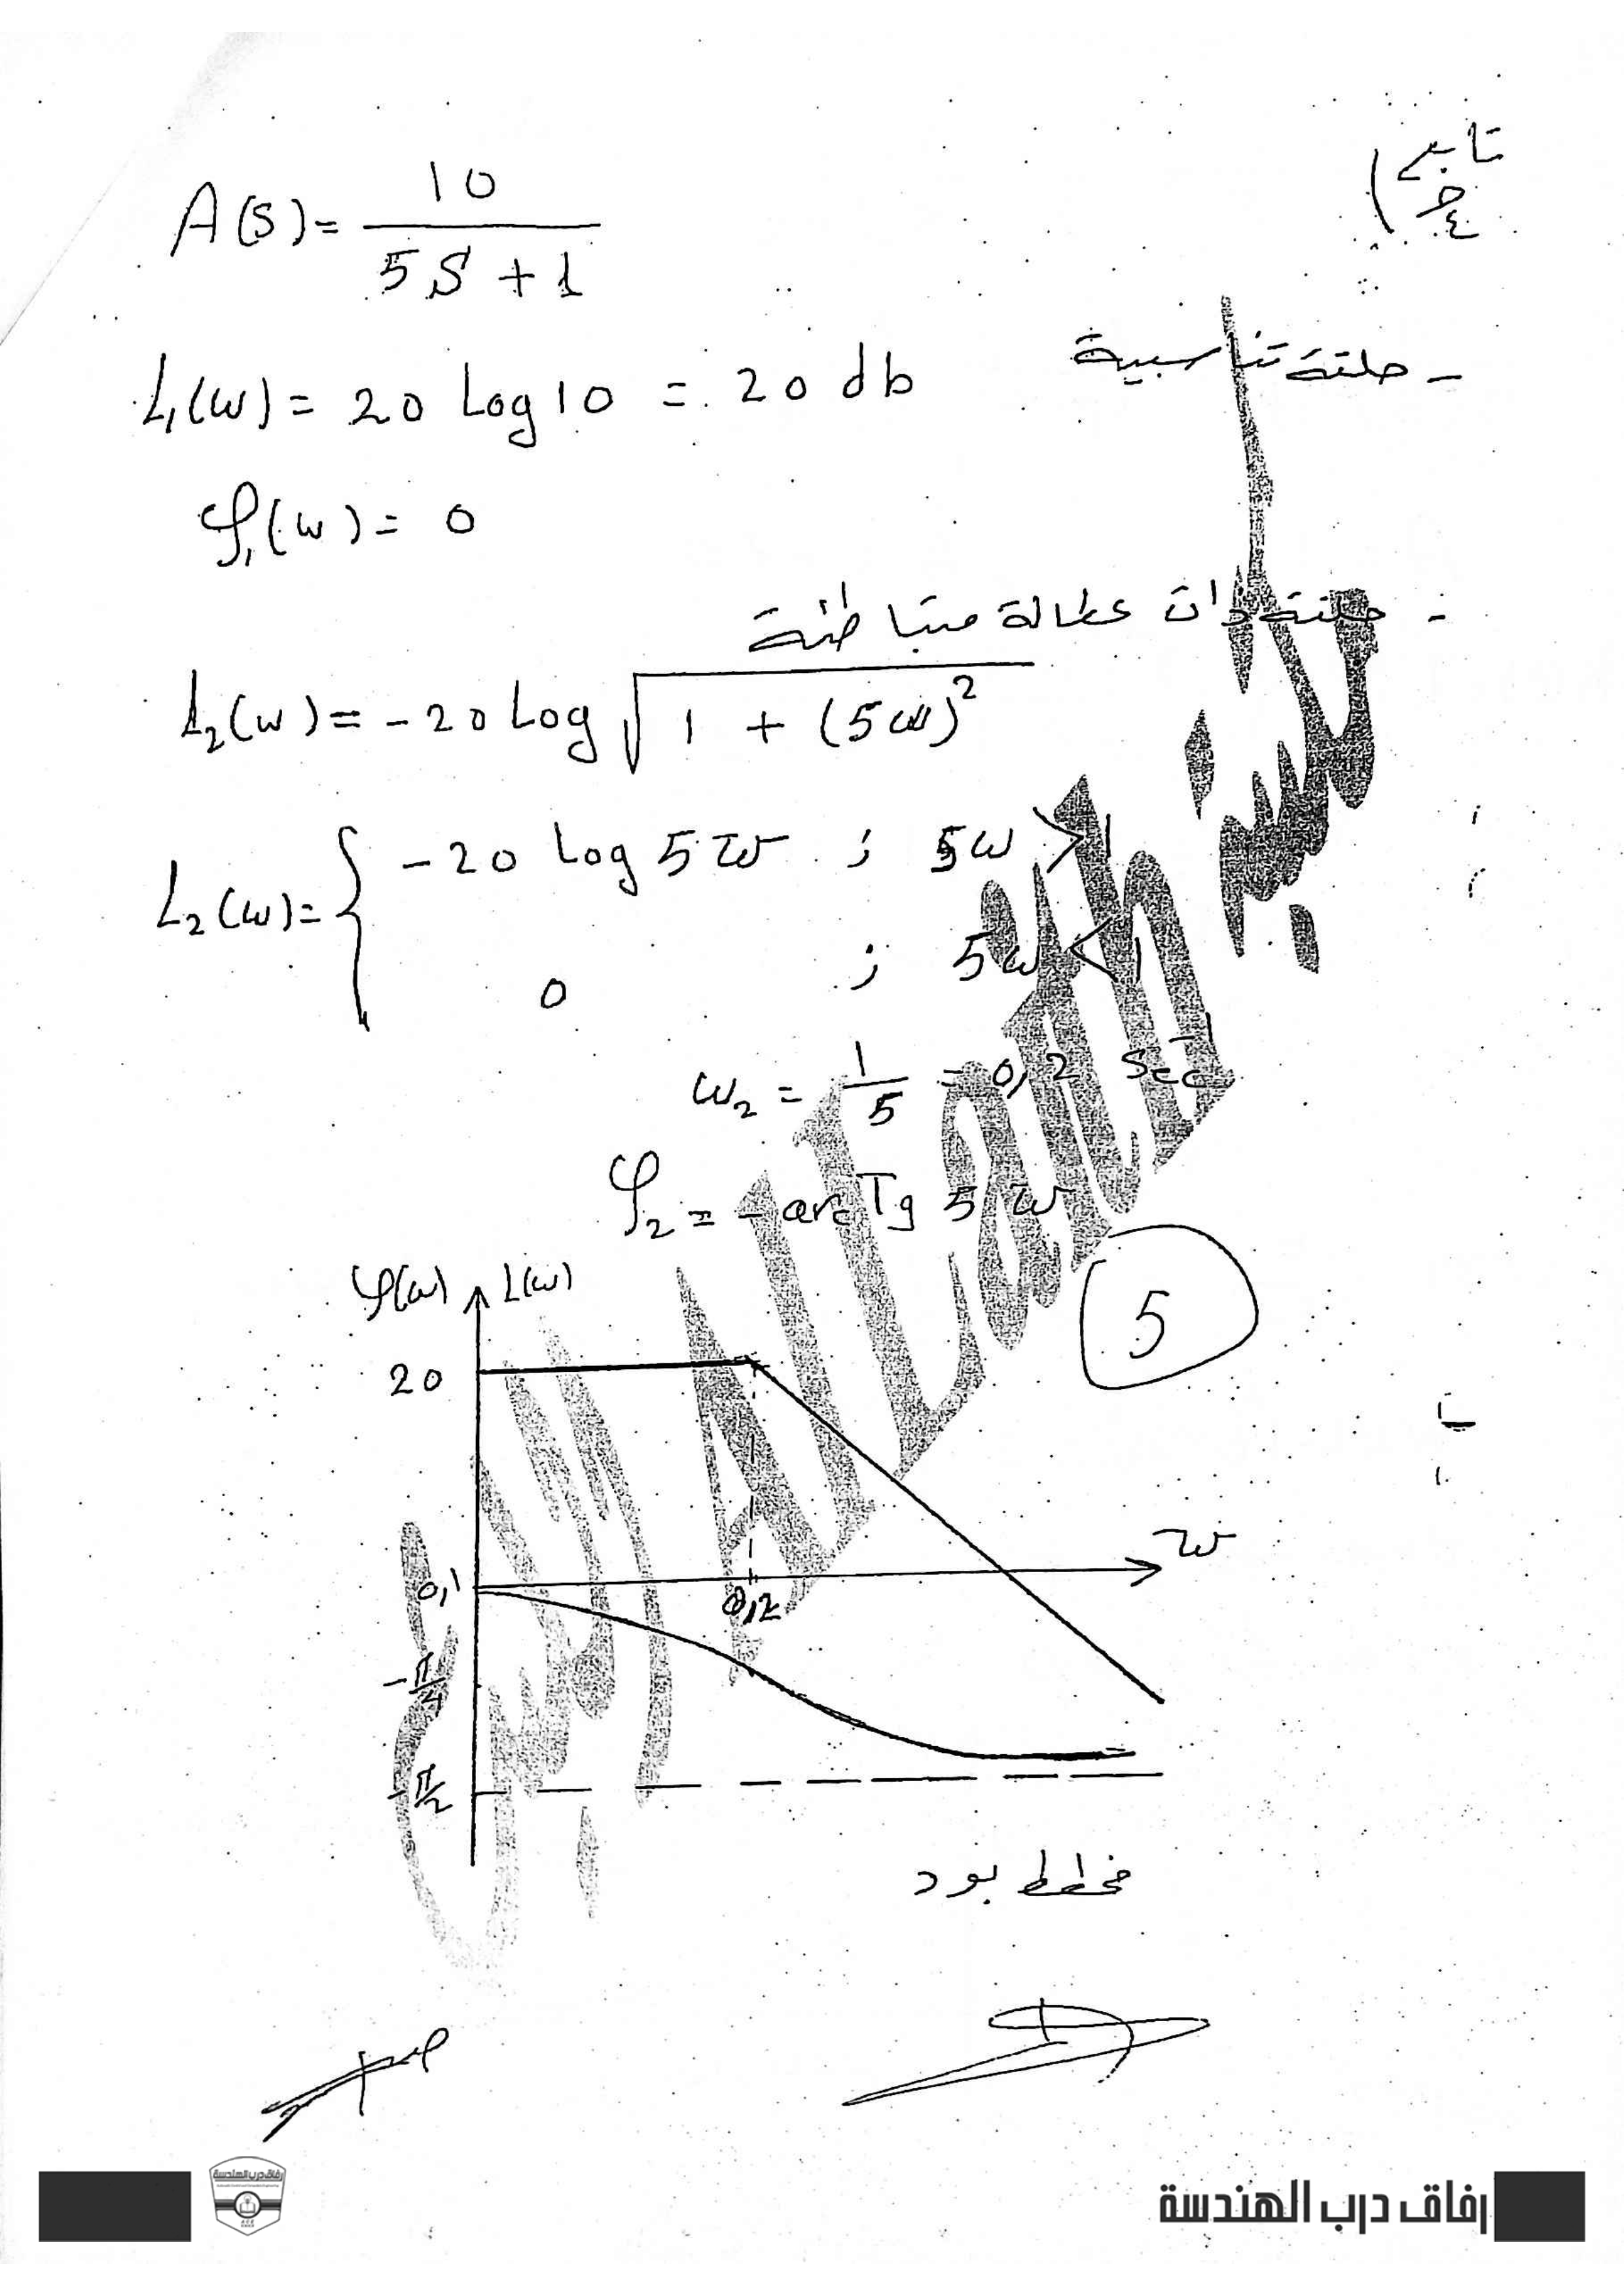 تابع ج٤)
A(S) = 10 / 5S + 1
- حلقة تناسبية
L₁(w) = 20 Log 10 = 20 db
φ₁(w) = 0
- حلقة ذات عطالة متباطئة
L₂(w) = -20 Log √(1 + (5w)²)
L₂(w) = { -20 log 5w ; 5w > 1
0 ; 5w < 1
w₂ = 1/5 = 0,2 Sec⁻¹
φ₂ = - arc Tg 5w
5
φ(w) L(w)
20
w
0,1
0,2
-π/4
-π/2
مخطط بود
رفاق درب الهندسة